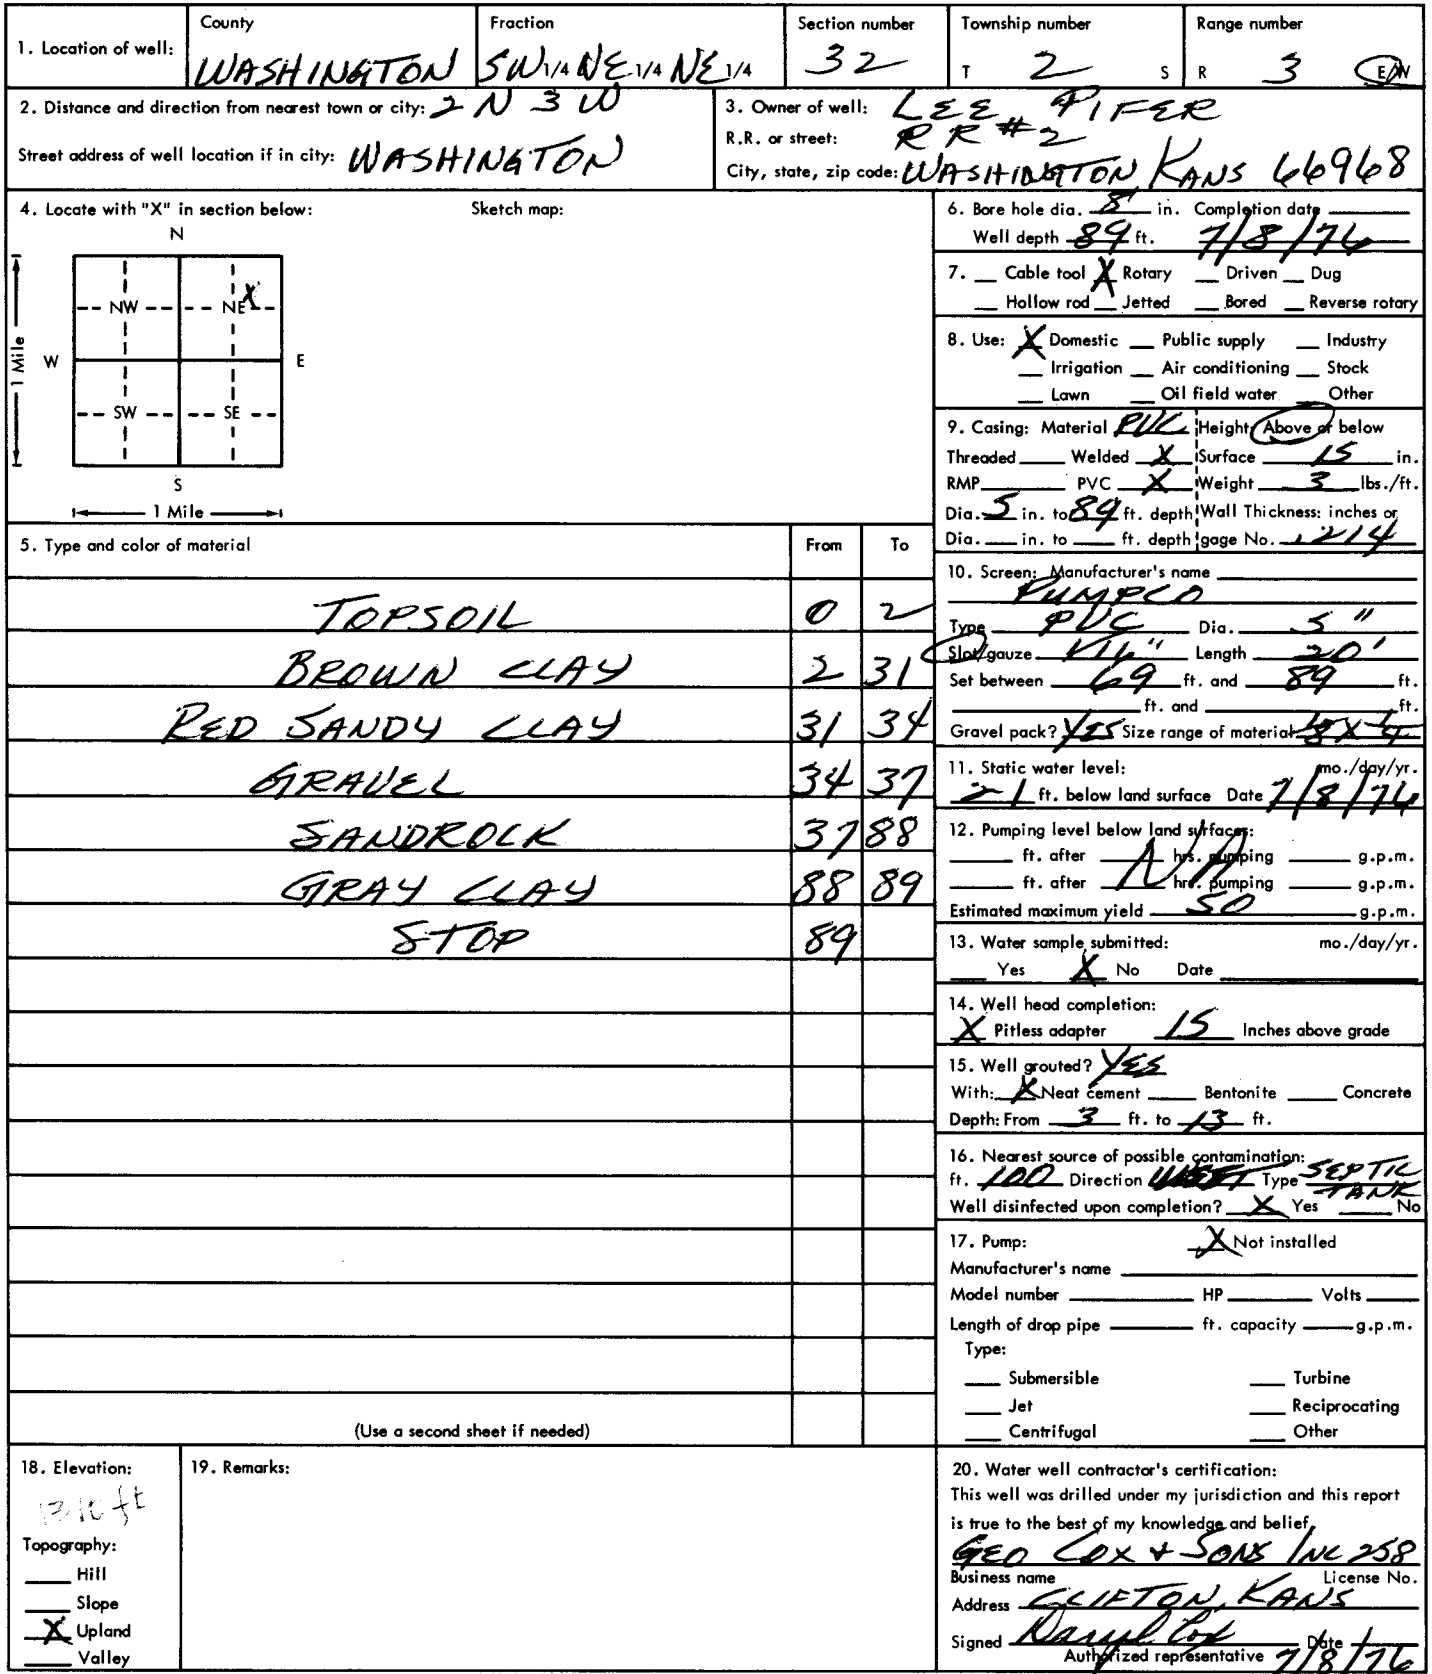 1. Location of well: County WASHINGTON Fraction SW 1/4 NE 1/4 NE 1/4 Section number 32 Township number T 2 S Range number R 3 E/W
2. Distance and direction from nearest town or city: 2 N 3 W
Street address of well location if in city: WASHINGTON
3. Owner of well: LEE PIFER
R.R. or street: RR #2
City, state, zip code: WASHINGTON KANS 66968
4. Locate with "X" in section below: Sketch map:
N
NW NE X
W E
1 Mile
SW SE
S
1 Mile
5. Type and color of material From To
TOPSOIL 0 2
BROWN CLAY 2 31
RED SANDY CLAY 31 34
GRAVEL 34 37
SANDROCK 37 88
GRAY CLAY 88 89
STOP 89
(Use a second sheet if needed)
6. Bore hole dia. 8 in. Completion date
Well depth 89 ft. 7/8/76
7. Cable tool X Rotary Driven Dug
Hollow rod Jetted Bored Reverse rotary
8. Use: X Domestic Public supply Industry
Irrigation Air conditioning Stock
Lawn Oil field water Other
9. Casing: Material PVC Height: Above or below
Threaded Welded X Surface 15 in.
RMP PVC X Weight 3 lbs./ft.
Dia. 5 in. to 89 ft. depth Wall Thickness: inches or
Dia. in. to ft. depth gage No. .214
10. Screen: Manufacturer's name
PUMPCO
Type PVC Dia. 5"
Slot/gauze 1/16" Length 20'
Set between 69 ft. and 89 ft.
ft. and ft.
Gravel pack? YES Size range of material 1/8 X 1/4
11. Static water level: mo./day/yr.
21 ft. below land surface Date 7/8/76
12. Pumping level below land surface:
ft. after hrs. pumping g.p.m.
NA
ft. after hrs. pumping g.p.m.
Estimated maximum yield 50 g.p.m.
13. Water sample submitted: mo./day/yr.
Yes X No Date
14. Well head completion:
X Pitless adapter 15 Inches above grade
15. Well grouted? YES
With: X Neat cement Bentonite Concrete
Depth: From 3 ft. to 13 ft.
16. Nearest source of possible contamination:
ft. 100 Direction WEST Type SEPTIC TANK
Well disinfected upon completion? X Yes No
17. Pump: X Not installed
Manufacturer's name
Model number HP Volts
Length of drop pipe ft. capacity g.p.m.
Type:
Submersible Turbine
Jet Reciprocating
Centrifugal Other
18. Elevation:
ft
Topography:
Hill
Slope
X Upland
Valley
19. Remarks:
20. Water well contractor's certification:
This well was drilled under my jurisdiction and this report
is true to the best of my knowledge and belief.
GEO COX & SONS INC 258
Business name License No.
Address CLIFTON, KANS
Signed Daryl Cox Date
Authorized representative 7/8/76